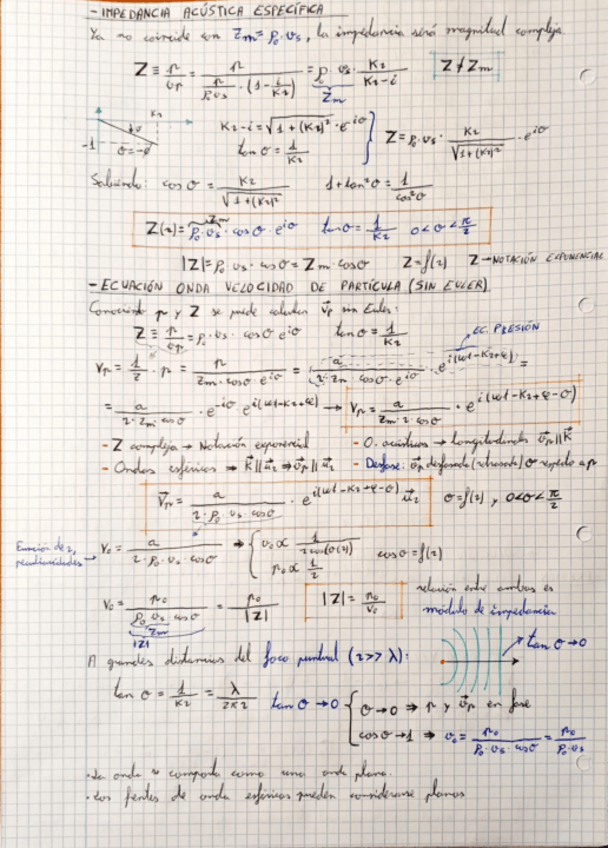 - IMPEDANCIA ACÚSTICA ESPECÍFICA
Ya no coincide con Zm = ρ₀·vs, la impedancia será magnitud compleja.
Z ≡ p/vp = p / (p/(ρ₀·vs) · (1 - i/(kr))) = ρ₀·vs · kr/(kr-i)   Z ≠ Zm
Zm
kr
-1   σ = -φ
kr - i = √(1+(kr)²) · e^(iσ)
tan σ = 1/(kr)
Z = ρ₀·vs · kr/√(1+(kr)²) · e^(iσ)
Sabiendo: cos σ = kr/√(1+(kr)²)   1 + tan²σ = 1/cos²σ
Zm
Z(r) = ρ₀·vs · cos σ · e^(iσ)   tan σ = 1/(kr)   0 < σ < π/2
|Z| = ρ₀·vs · cos σ = Zm · cos σ   Z = f(r)   Z → NOTACIÓN EXPONENCIAL
- ECUACIÓN ONDA VELOCIDAD DE PARTÍCULA (SIN EULER)
Conociendo p y Z se puede calcular v⃗p sin Euler:
Z ≡ p/vp = ρ₀·vs · cos σ e^(iσ)   tan σ = 1/(kr)
EC. PRESIÓN
vp = 1/Z · p = p/(Zm · cos σ · e^(iσ)) = a/(r · Zm · cos σ · e^(iσ)) · e^(i(ωt-kr+φ)) =
= a/(r · Zm · cos σ) · e^(-iσ) e^(i(ωt-kr+φ)) → vp = a/(r · Zm · cos σ) · e^(i(ωt-kr+φ-σ))
- Z compleja → Notación exponencial   - O. acústicas → Longitudinales v⃗p || k⃗
- Ondas esféricas ⇒ k⃗ || u⃗r ⇒ v⃗p || u⃗r   - Desfase: v⃗p desfasada (atrasada) σ respecto a p
v⃗p = a/(r · ρ₀ · vs · cos σ) · e^(i(ωt-kr+φ-σ)) u⃗r   σ = f(r) y 0 < σ < π/2
Función de r, peculiaridades → v₀ = a/(r · ρ₀ · vs · cos σ) ⇒ { v₀ ∝ 1/(r cos(σ(r)))   cos σ = f(r)
p₀ ∝ 1/r
v₀ = p₀/(ρ₀·vs · cos σ) = p₀/|Z|   |Z| = p₀/v₀   relación entre ambas es
Zm
|Z|
módulo de impedancia
A grandes distancias del foco puntual (r >> λ):   tan σ → 0
tan σ = 1/(kr) = λ/(2πr)   tan σ → 0 { σ → 0 ⇒ p y v⃗p en fase
cos σ → 1 ⇒ v₀ = p₀/(ρ₀·vs · cos σ) = p₀/(ρ₀·vs)
· La onda se comporta como una onda plana.
· Los frentes de onda esféricos pueden considerarse planos